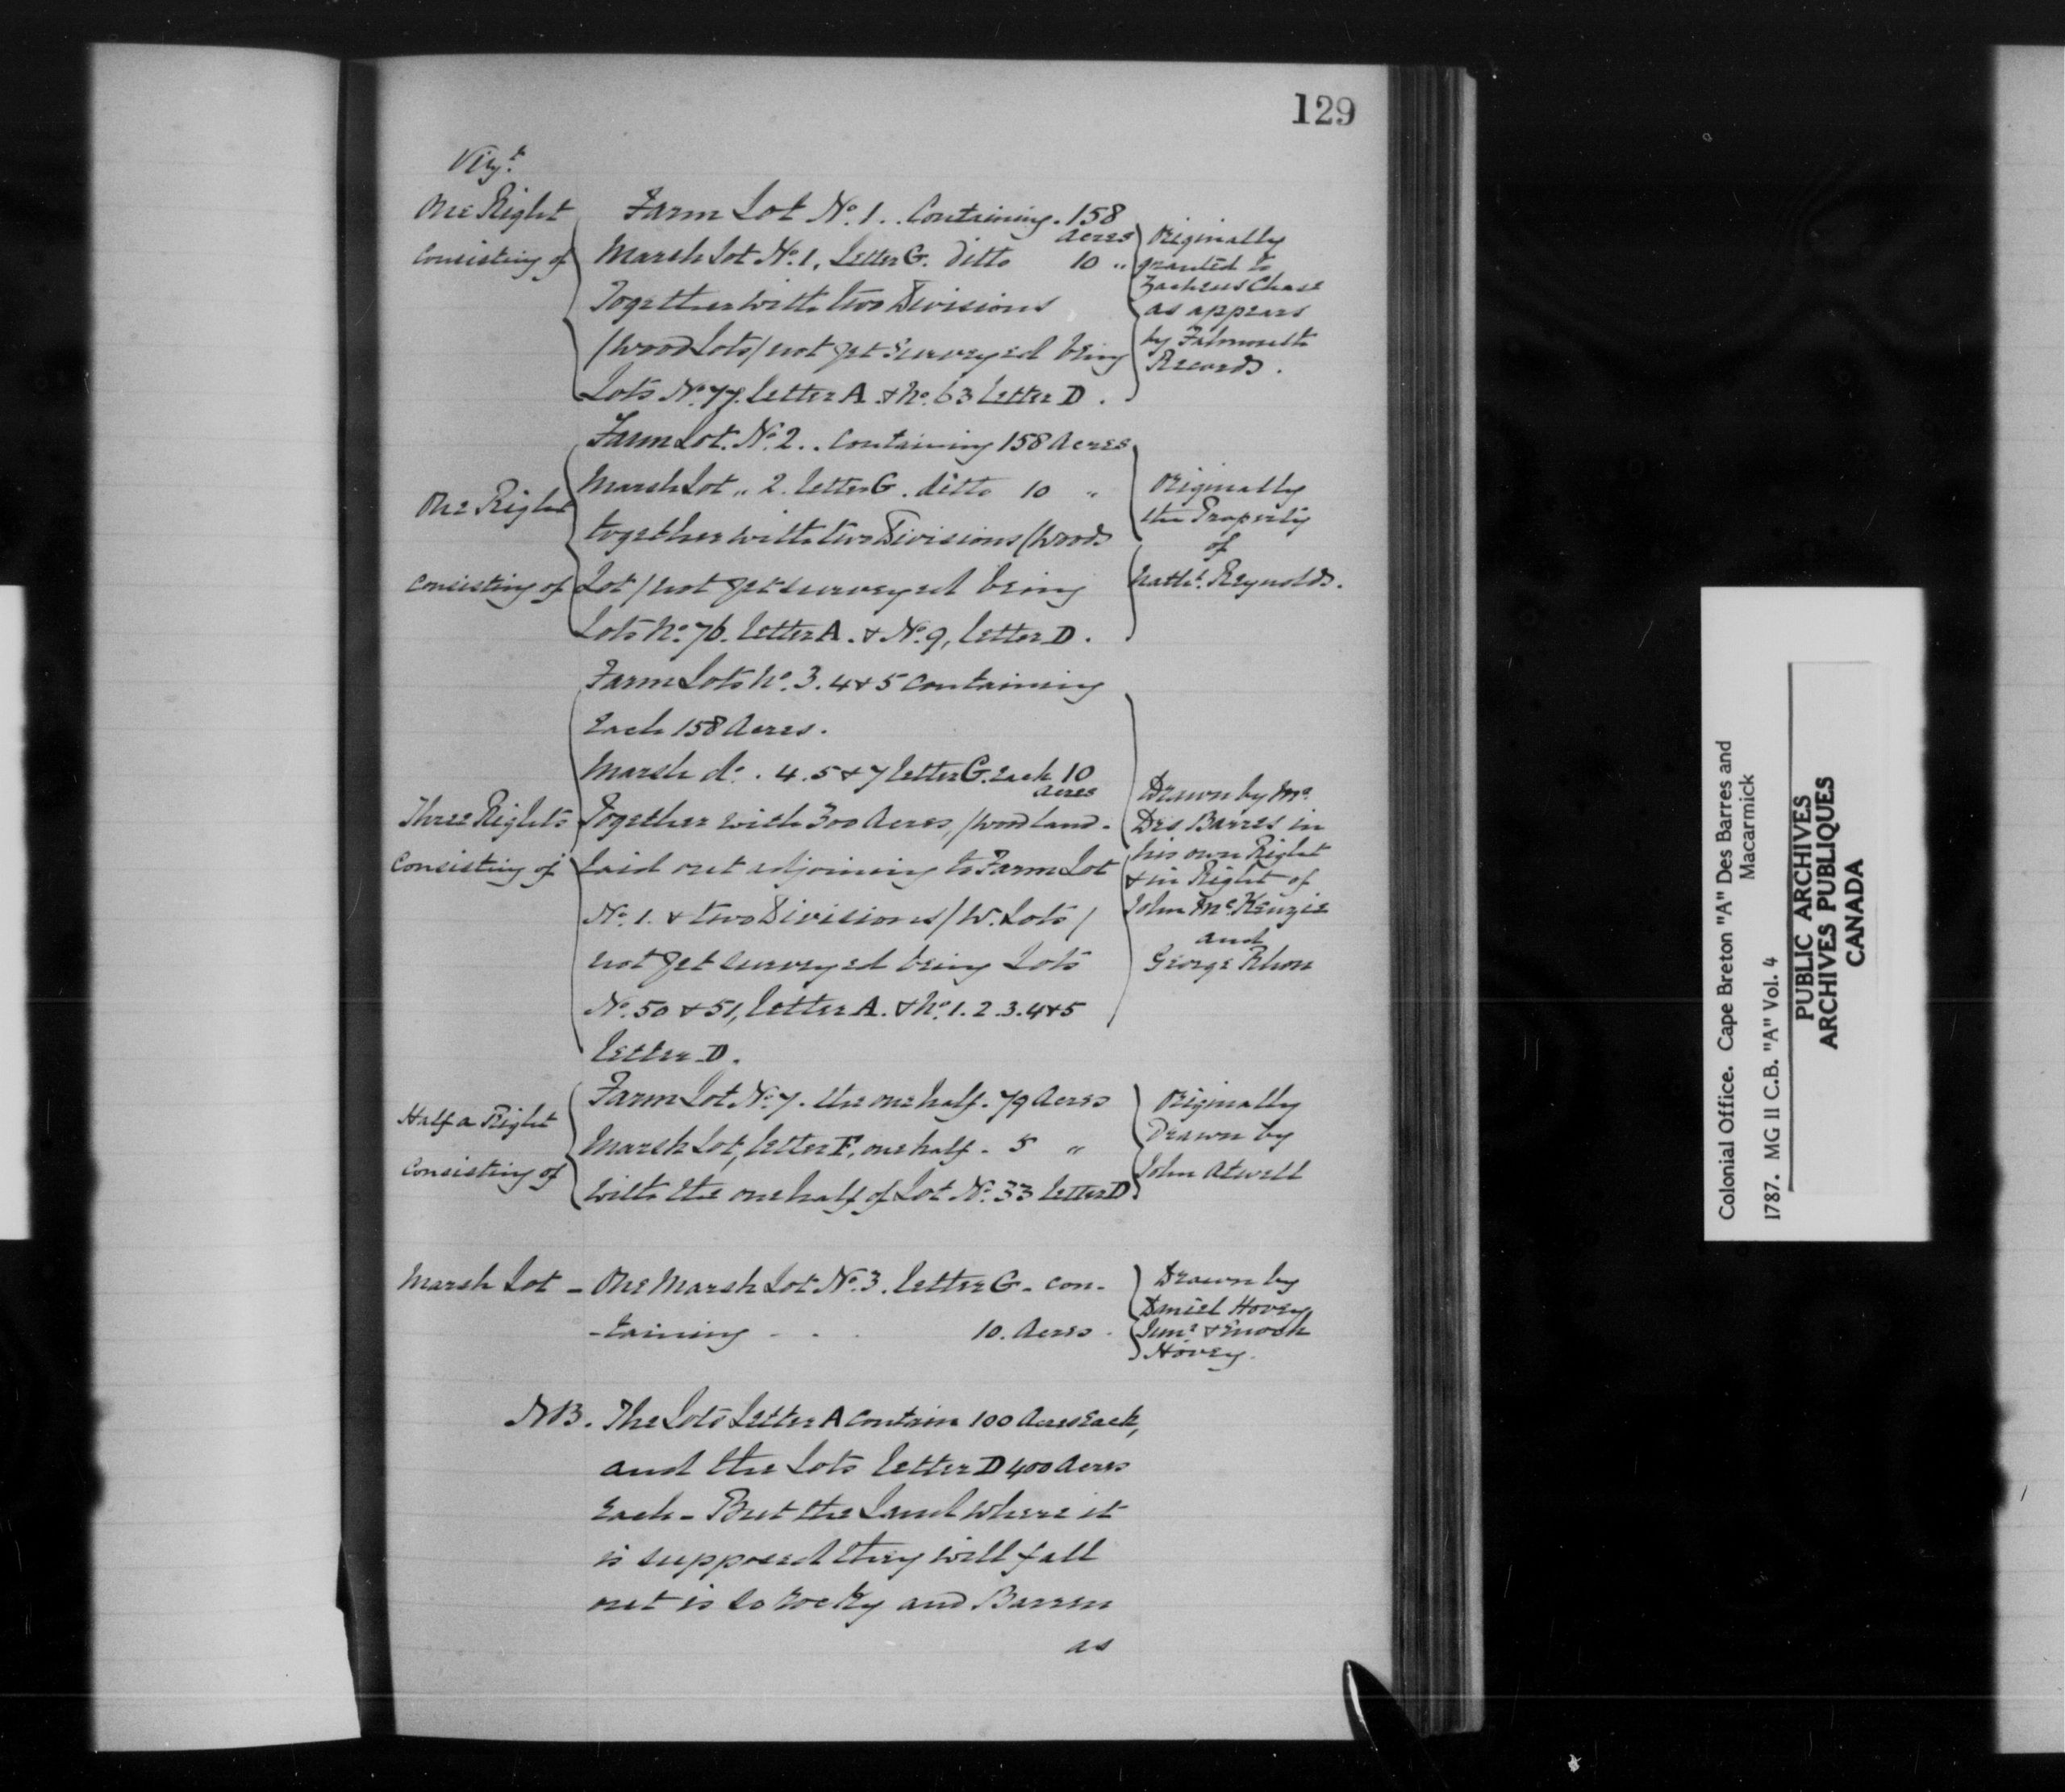 129
Vizt.
One Right
Consisting of
Farm Lot No. 1. . Containing. 158
acres
Marsh Lot No. 1, Letter G. ditto 10 "
Together with two Divisions
/Wood Lots/ not yet surveyed being
Lots No. 77. letter A & No. 63 letter D.
Originally
granted to
Zacheus Chase
as appears
by Falmouth
Records.
One Right
consisting of
Farm Lot. No. 2. . containing 158 Acres
Marsh Lot " 2. letter G. ditto 10 "
together with two Divisions (Wood
Lot / not yet surveyed being
Lots No. 76. letter A. & No. 9, letter D.
Originally
the Property
of
Nathl. Reynolds.
Three Rights
Consisting of
Farm Lots No. 3. 4 & 5 containing
Each 158 Acres.
Marsh do. . 4. 5 & 7 letter G. each 10
acres
Together with 300 Acres /wood land.
laid out adjoining to Farm Lot
No. 1. & two Divisions / W. Lots /
not yet surveyed being Lots
No. 50 & 51, letter A. & No. 1. 2. 3. 4 & 5
letter D.
Drawn by Mr.
Des Barres in
his own Right
& in Right of
John McKenzie
and
George
Half a Right
Consisting of
Farm Lot No. 7. the one half. 79 Acres
Marsh Lot, letter F, one half - 5 "
with the one half of Lot No. 33 letter D.
Originally
Drawn by
John Atwell
Marsh Lot - One Marsh Lot No. 3. letter G - con-
-taining - . . 10. Acres.
Drawn by
Daniel Hovey
Junr. & Enoch
Hovey.
NB. The Lots Letter A contain 100 Acres Each,
and the Lots letter D 400 Acres
Each - But the Land where it
is supposed they will fall
out is so rocky and Barren
as
Colonial Office. Cape Breton "A" Des Barres and
Macarmick
1787. MG 11 C.B. "A" Vol. 4
PUBLIC ARCHIVES
ARCHIVES PUBLIQUES
CANADA